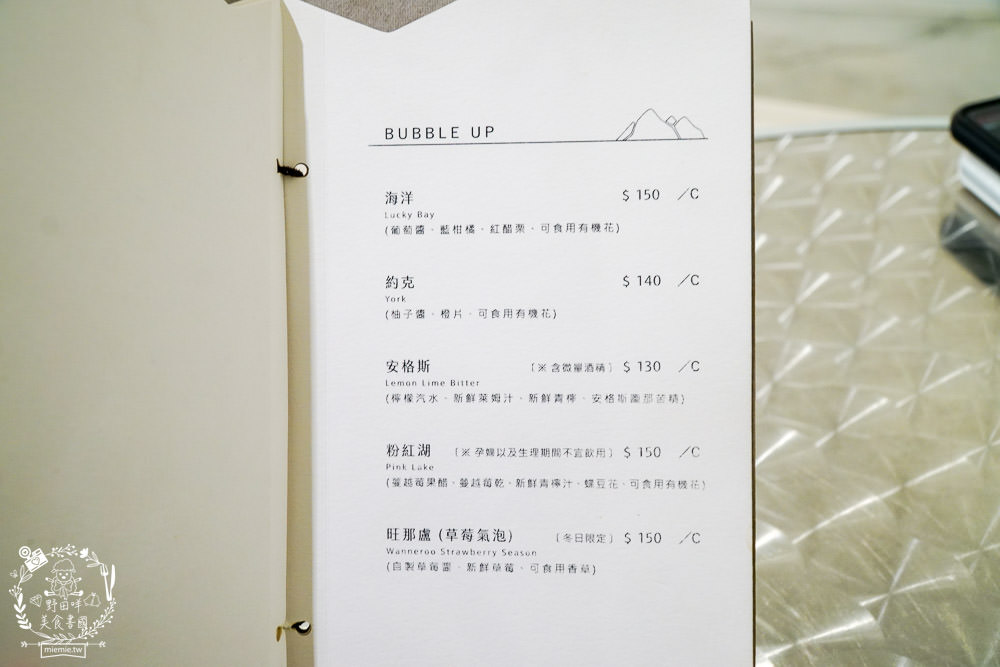 BUBBLE UP
海洋 $ 150 /C
Lucky Bay
(葡萄醬、藍柑橘、紅醋栗、可食用有機花)
約克 $ 140 /C
York
(柚子醬、橙片、可食用有機花)
安格斯 〔※ 含微量酒精〕 $ 130 /C
Lemon Lime Bitter
(檸檬汽水、新鮮萊姆汁、新鮮青檸、安格斯圖那苦精)
粉紅湖 〔※ 孕婦以及生理期間不宜飲用〕 $ 150 /C
Pink Lake
(蔓越莓果醋、蔓越莓乾、新鮮青檸汁、蝶豆花、可食用有機花)
旺那盧 (草莓氣泡) 〔冬日限定〕 $ 150 /C
Wanneroo Strawberry Season
(自製草莓醬、新鮮草莓、可食用香草)
野田咩
美食書國
miemie.tw